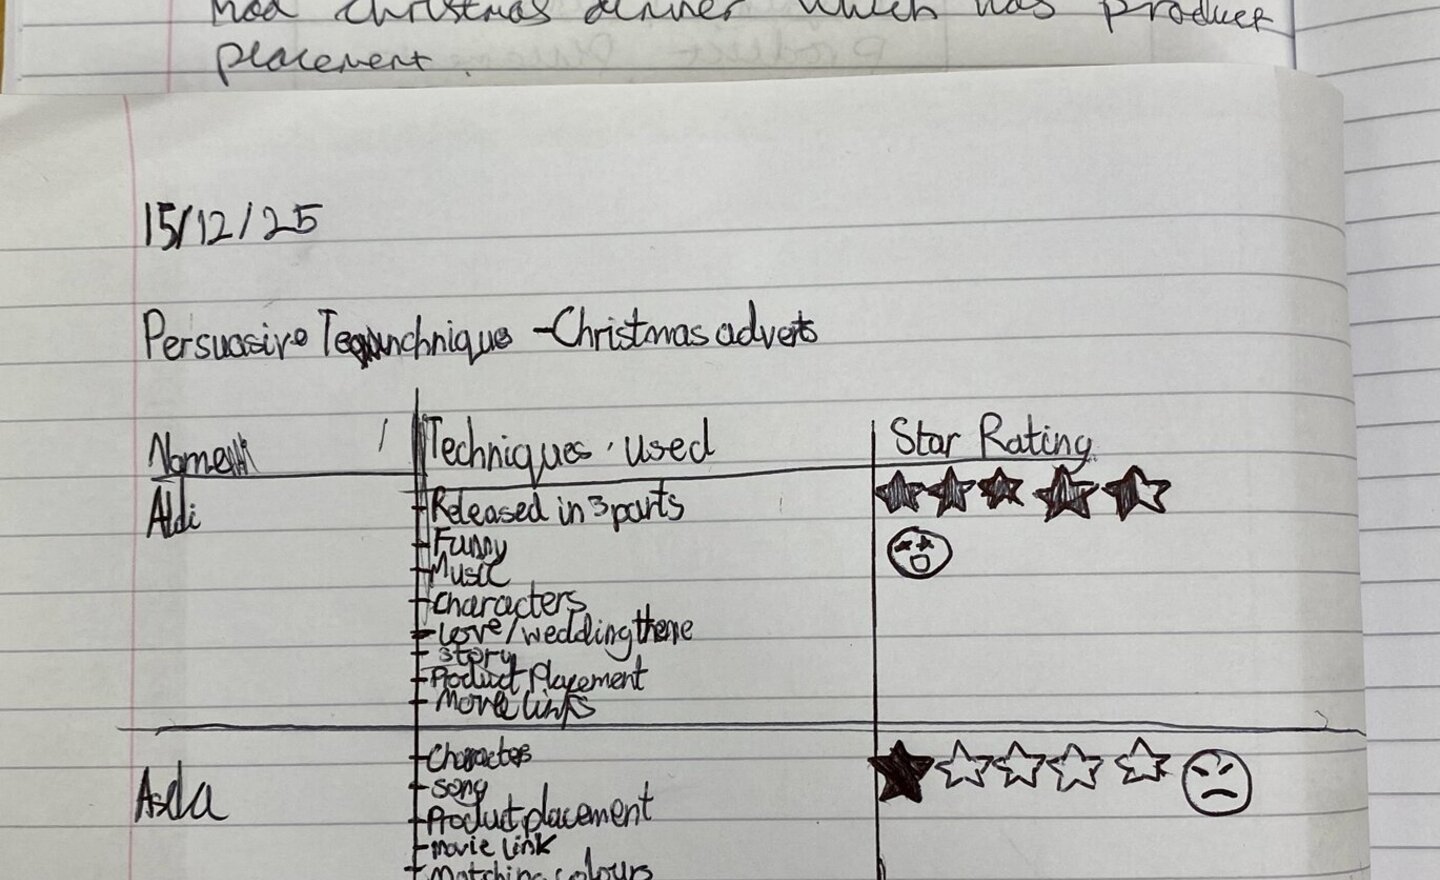 had christmas dinner which has product
placement.
15/12/25
Persuasive Technique - Christmas adverts
Name Techniques used Star Rating
Aldi - Released in 3 parts
- Funny
- Music
- characters
- Love/wedding theme
- story
- Product Placement
- Movie links
Asda - Character
- song
- Product placement
- movie link
- Matching colours